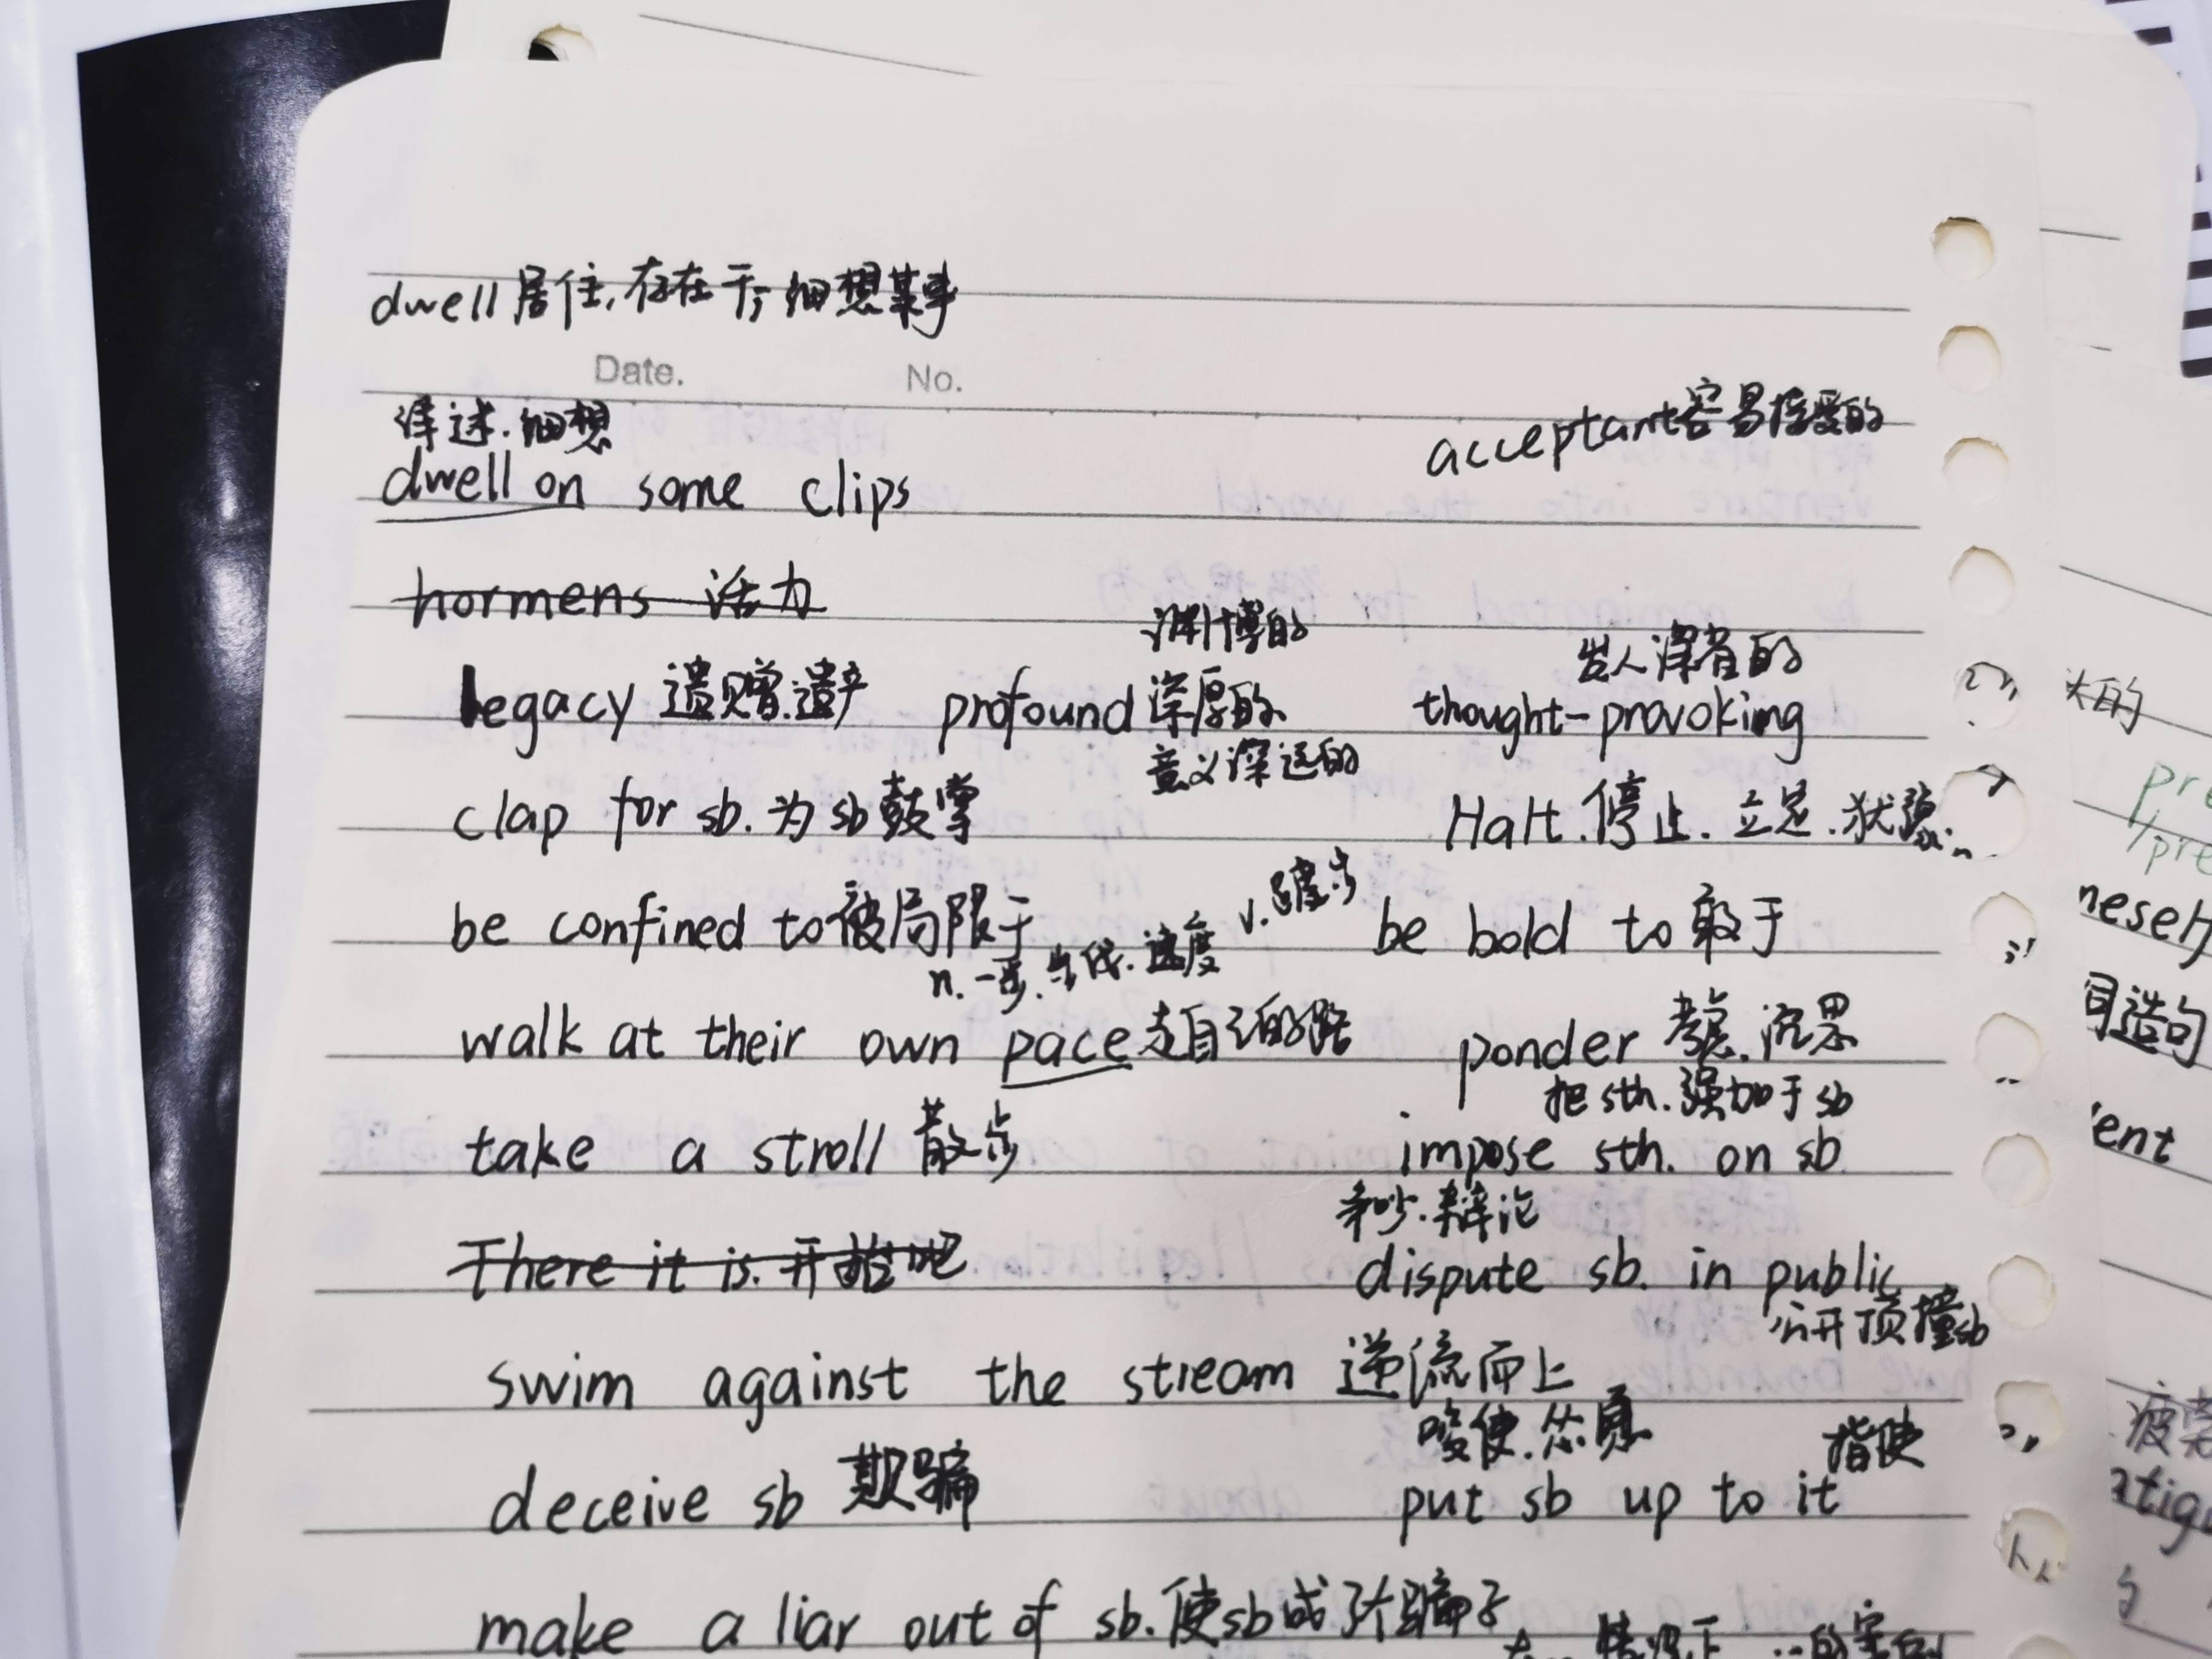 dwell 居住,存在于;细想某事
Date. No.
详述.细想
acceptant容易接受的
dwell on some clips
hormens 活力
渊博的
发人深省的
legacy 遗赠.遗产 profound 深厚的 thought-provoking
意义深远的
clap for sb. 为sb鼓掌 Halt.停止.立足.
v.踱步
be confined to被局限于 be bold to 敢于
n.一步.步伐.速度
walk at their own pace走自己的路 ponder 考虑.沉思
把sth.强加于sb
take a stroll 散步 impose sth. on sb.
争吵.辩论
There it is. 开始吧 dispute sb. in public
公开顶撞sb
swim against the stream 逆流而上
唆使.怂恿 指使
deceive sb 欺骗 put sb up to it
make a liar out of sb.使sb成了个骗子
大的
pre
/pre
造句
ent